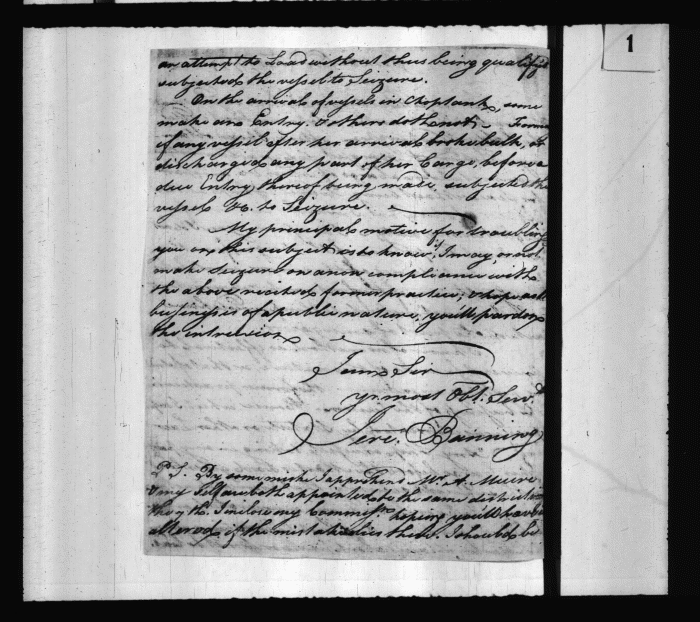 1
an attempt to Load without thus being qualified
subjected the vessel to Seizure.
On the arrival of vessels in Choptank, some
make an Entry & others doth not;
if any vessel after her arrival broke bulk, or
discharged any part of her Cargo, before a
due Entry thereof being made, subjected the
vessel &c. to Seizure.
My principal motive for troubling
you on this subject is to know if I may, or not
make Seizure on a non compliance with
the above recited former practice; & hope as the
business is of a public nature, you'll pardon
the intrusion
I am Sir
yr. most Obt. Servt.
Jere. Banning
P.S. By some mistake I apprehend Mr. A.
& my Self are both appointed to the same district
I inclose my Commisn. hoping you'll have it
altered if the mistake lies there. I should be